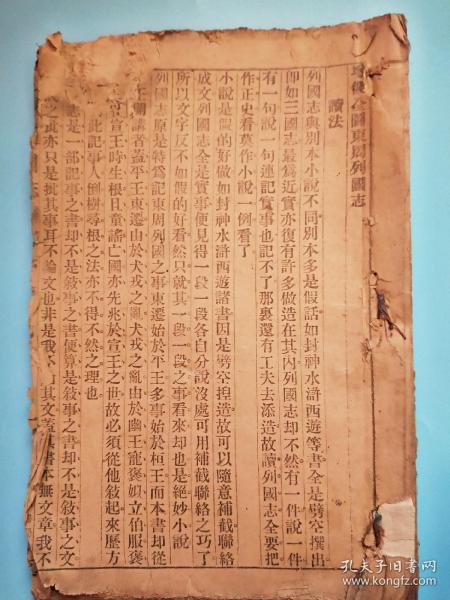 增像全圖東周列國志
讀法
列國志與別本小說不同別本多是假話如封神水滸西遊等書全是劈空撰出
卽如三國志最為近實亦復有許多做造在其內列國志却不然有一件說一件
有一句說一句連記實事也記不了那裏還有工夫去添造故讀列國志全要把
作正史看莫作小說一例看了
小說是假的好做如封神水滸西遊諸書因是劈空揑造故可以隨意補截聯絡
成文列國志全是實事便見得一段一段各自分說沒處可用補截聯絡之巧了
所以文字反不如假的好看然只就其一段一段之事看來却也是絕妙小說
列國志原是特為記東周列國之事東遷始於平王多事始於桓王而本書却從
王開講者蓋平王東遷由於犬戎之亂犬戎之亂由於幽王寵褒姒立伯服褒
宣王時生根且童謠亡國亦先兆於宣王之世故必須從他敍起來歷方
此記事人倒樹尋根之法亦不得不然之理也
志是一部記事之書却不是敍事之書便算是敍事之書却不是敍事之文
之實亦只是批其事耳不論文也非是我不其文蓋其書本無文章我不
孔夫子旧书网
book.kongfz.com